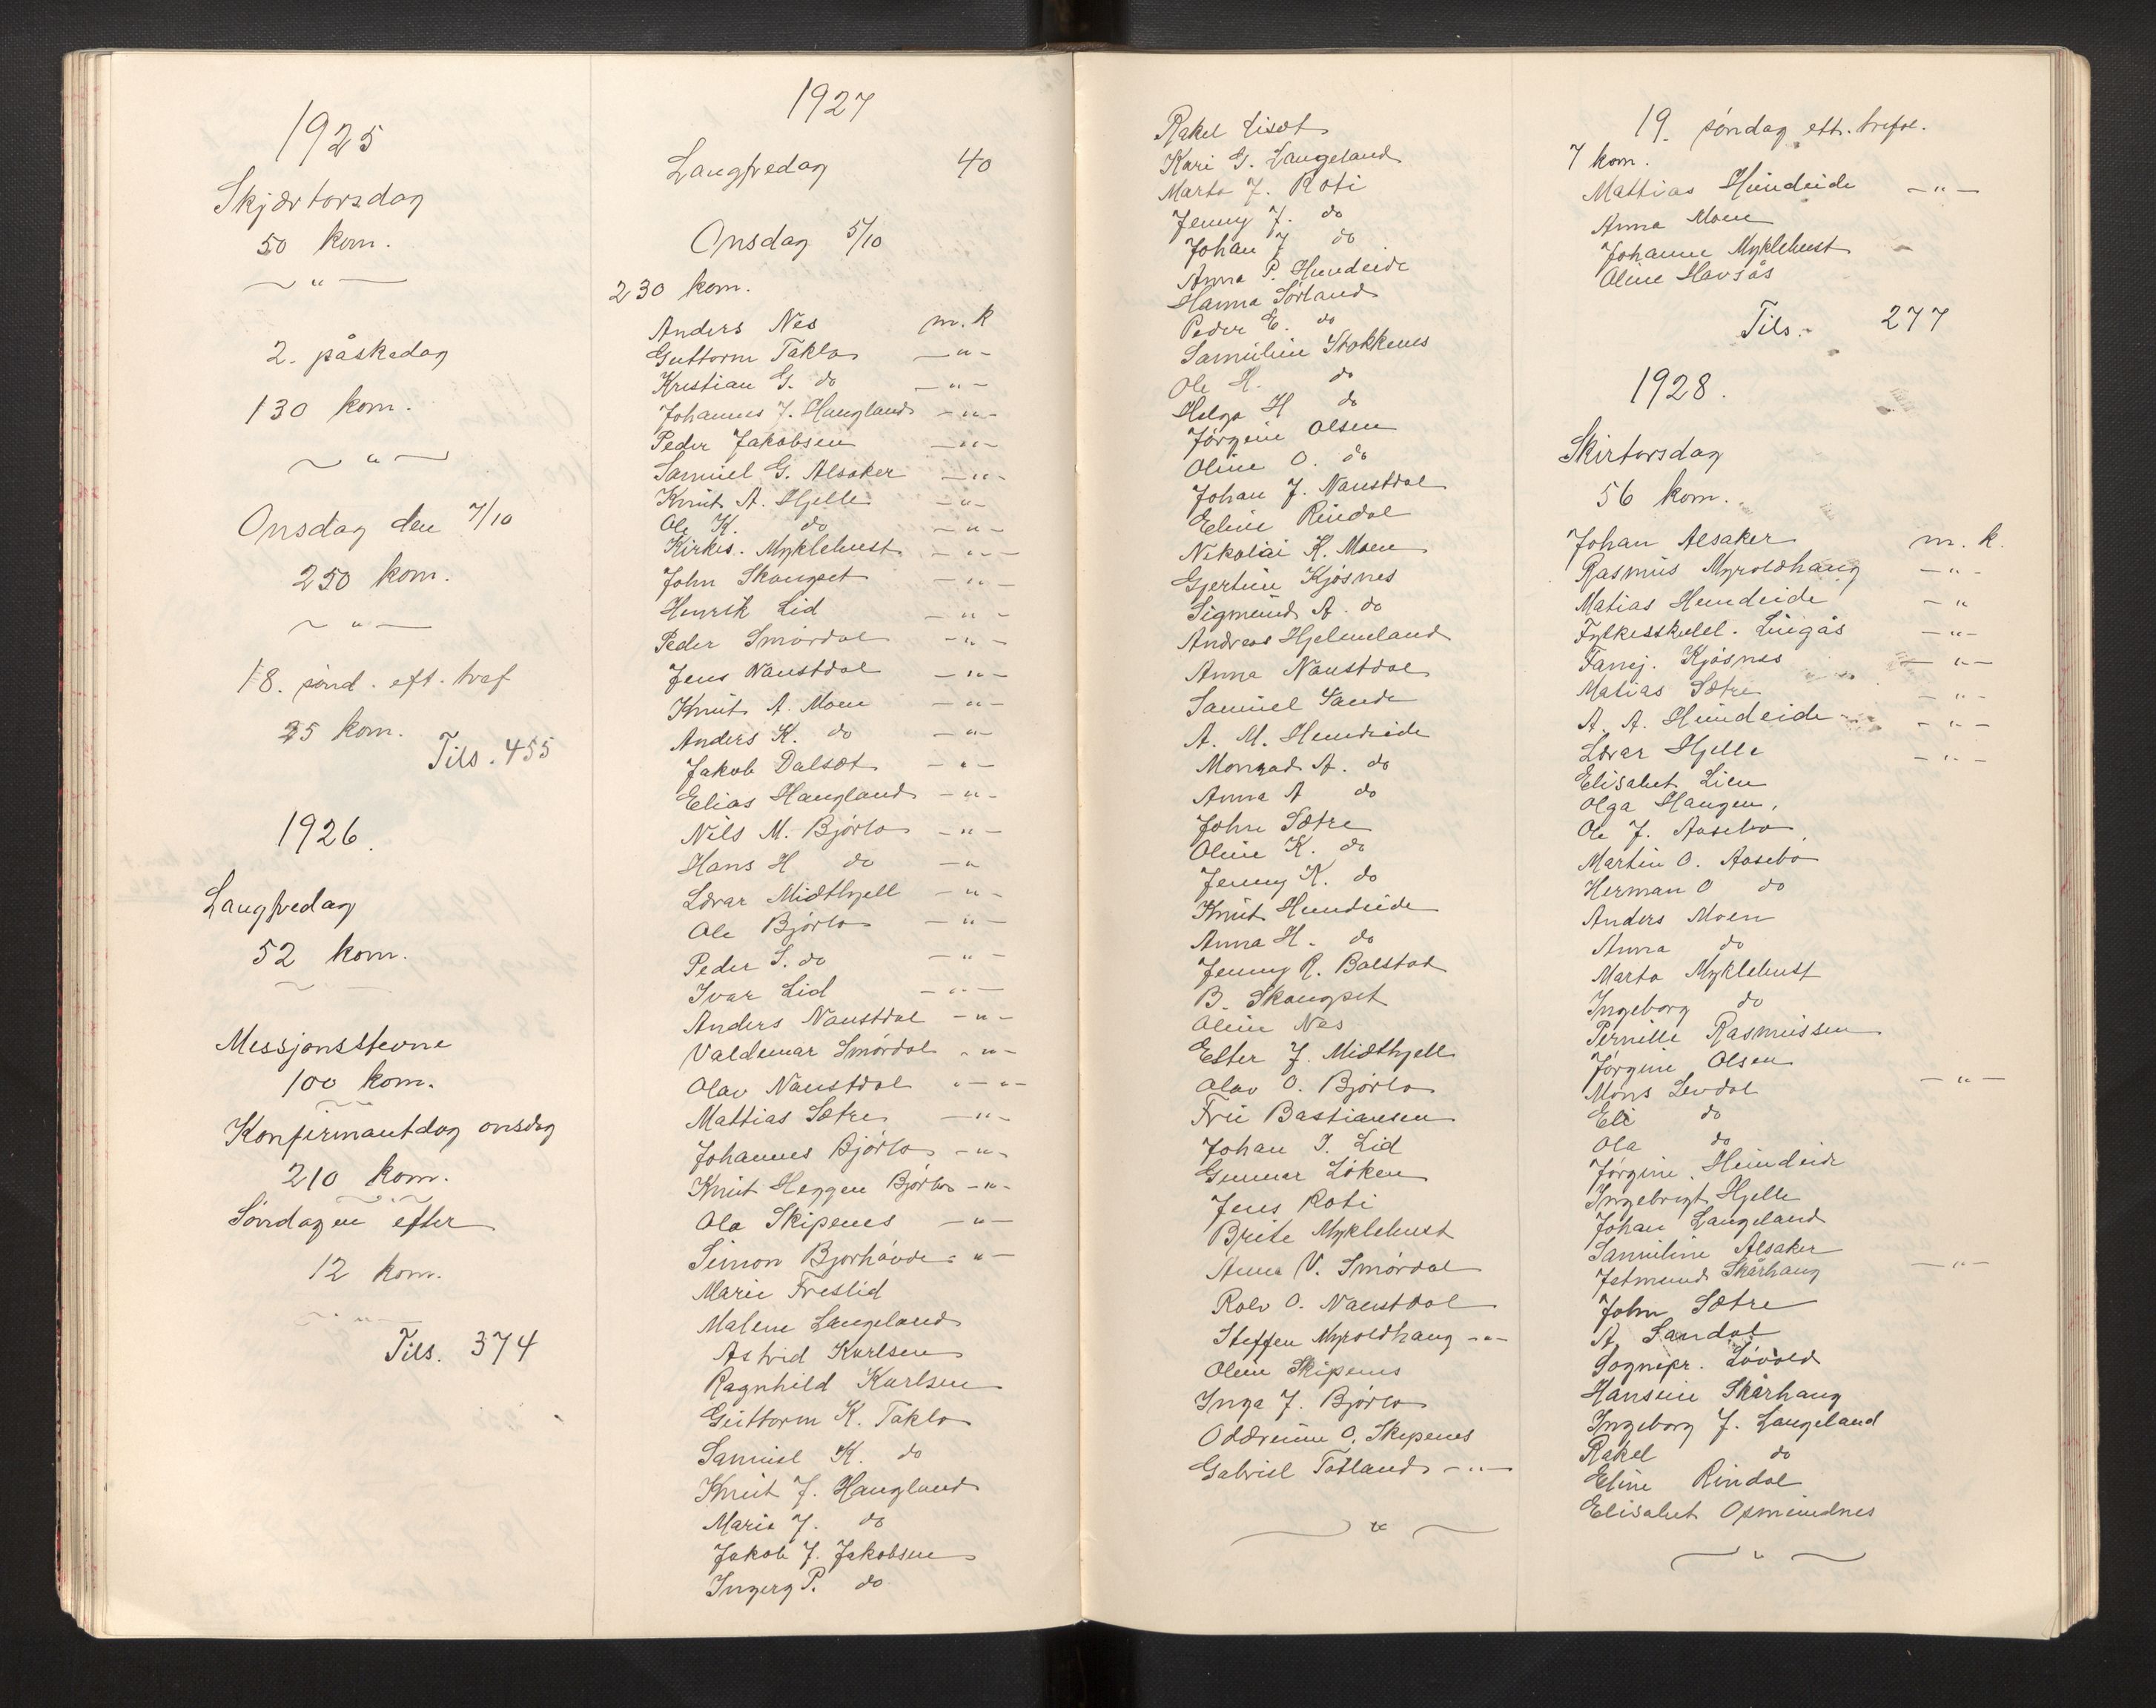 1925
Skjærtorsdag
50 kom.
— " —
2. påskedag
130 kom.
— " —
Onsdag den 7/10
250 kom.
— " —
18. sönd. eft. tref
25 kom.
Tils. 455
1926.
Langfredag
52 kom.
Messjonsstevne
100 kom.
Konfirmantdag onsdag
210 kom.
Söndagen efter
12 kom.
— " —
Tils. 374
1927
Langfredag 40
Onsdag 5/10
230 kom.
Anders Nes m. k
Guttorm Taklo — " —
Kristian G. do — " —
Johannes J. Haugland — " —
Peder Jakobsen — " —
Samuel G. Alsaker — " —
Knut A. Hjelle — " —
Ole K. do — " —
Kirkes. Myklebust — " —
John Skaugset — " —
Henrik Lid — " —
Peder Smördal — " —
Jens Naustdal — " —
Knut A. Moen — " —
Anders K. do — " —
Jakob Dalset — " —
Elias Haugland — " —
Nils M. Björlo — " —
Hans H do — "
Ldvar Midthjell — " —
Ole Björlo — " —
Peder S. do — " —
Ivar Lid — " —
Anders Naustdal — " —
Valdemar Smördal — " —
Olav Naustdal — " —
Mattias Sætre — " —
Johannes Björlo — " —
Knut Heggen Björlo — " —
Ola Skipenes — " —
Simon Bjorhövde — " —
Marie Freslid
Malene Langeland
Astrid Karlsen
Ragnhild Karlsen
Guttorm K. Taklo
Samuel K. do
Knut J. Haugland
Marie J. do
Jakob J. Jakobsen
Ingerg P. do
Rakel
Kari G. Langeland
Marta J. Roti
Jenny J. do
Johan J do
Anna P. Hundeide
Hanna Sörland
Peder E. do
Samuline Stokkenes
Ole H. do
Helga H do
Jörgine Olsen
Oline O. do
Johan J. Naustdal
Eline Rindal
Nikolai K. Moen
Gjertine Kjösnes
Sigmund A. do
Andreas Hjelmeland
Anna Naustdal
Samuel Sande
A. M. Hundeide
Monrad A. do
Anna A do
John Sætre
Oline K. do
Jenny K. do
Knut Hundeide
Anna H. do
Jenny R. Balstad
B. Skaugset
Oline Nes
Ester J. Midthjell
Olav O. Björlo
Fru Bastiansen
Johan I. Lid
Gunnar Löken
Jens Roti
Brite Myklebust
Anna V. Smördal
Rolv O. Naustdal
Steffen Myroldhaug — " —
Oline Skipenes
Inga J. Björlo
Oddrunn O. Skipenes
Gabriel Totland — " —
19. söndag ett. trefol.
7 kom.
Mattias Hundeide — " —
Anna Moen
Johanne Myklebust
Oline Havsås
Tils. 277
1928.
Skirtorsdag
56 kom.
Johan Alsaker m. k.
Rasmus Myroldhaug — " —
Matias Hundeide — "
Fylkesskulel. Lingås — " —
Fanej. Kjösnes — " —
Matias Sætre — " —
A. A. Hundeide — " —
Ldvar Hjelle — " —
Elisabet Lien
Olga Haugen.
Ole J. Aasebö
Martin O. Aasebö
Herman O do
Anders Moen
Anna do
Marta Myklebust
Ingeborg do
Pernille Rasmussen
Jörgine Olsen
Mons Levdal — " —
Eli do
Ola do
Jörgine Hundeide
Ingebrigt Hjelle
Johan Langeland
Samuline Alsaker
Jetmund Skårhaug — " —
John Sætre
A. Sandal
Sognepr. Lövold
Hansine Skårhaug
Ingeborg J. Langeland
Rakel do
Eline Rindal
Elisabet Osmundnes